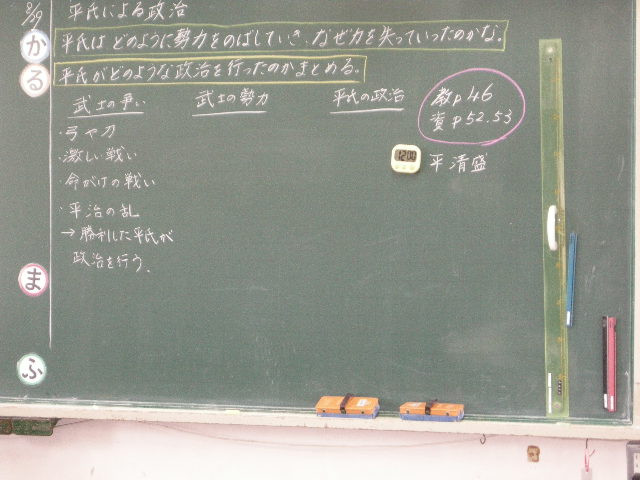 8/19
平氏による政治
か
平氏は どのように勢力をのばしていき、なぜ力を失っていったのかな。
る
平氏がどのような政治を行ったのかまとめる。
武士の争い
・弓や刀
・激しい戦い
命がけの戦い
・平治の乱
→勝利した平氏が
政治を行う、
武士の勢力
平氏の政治
平清盛
教p46
資p52.53
ま
ふ